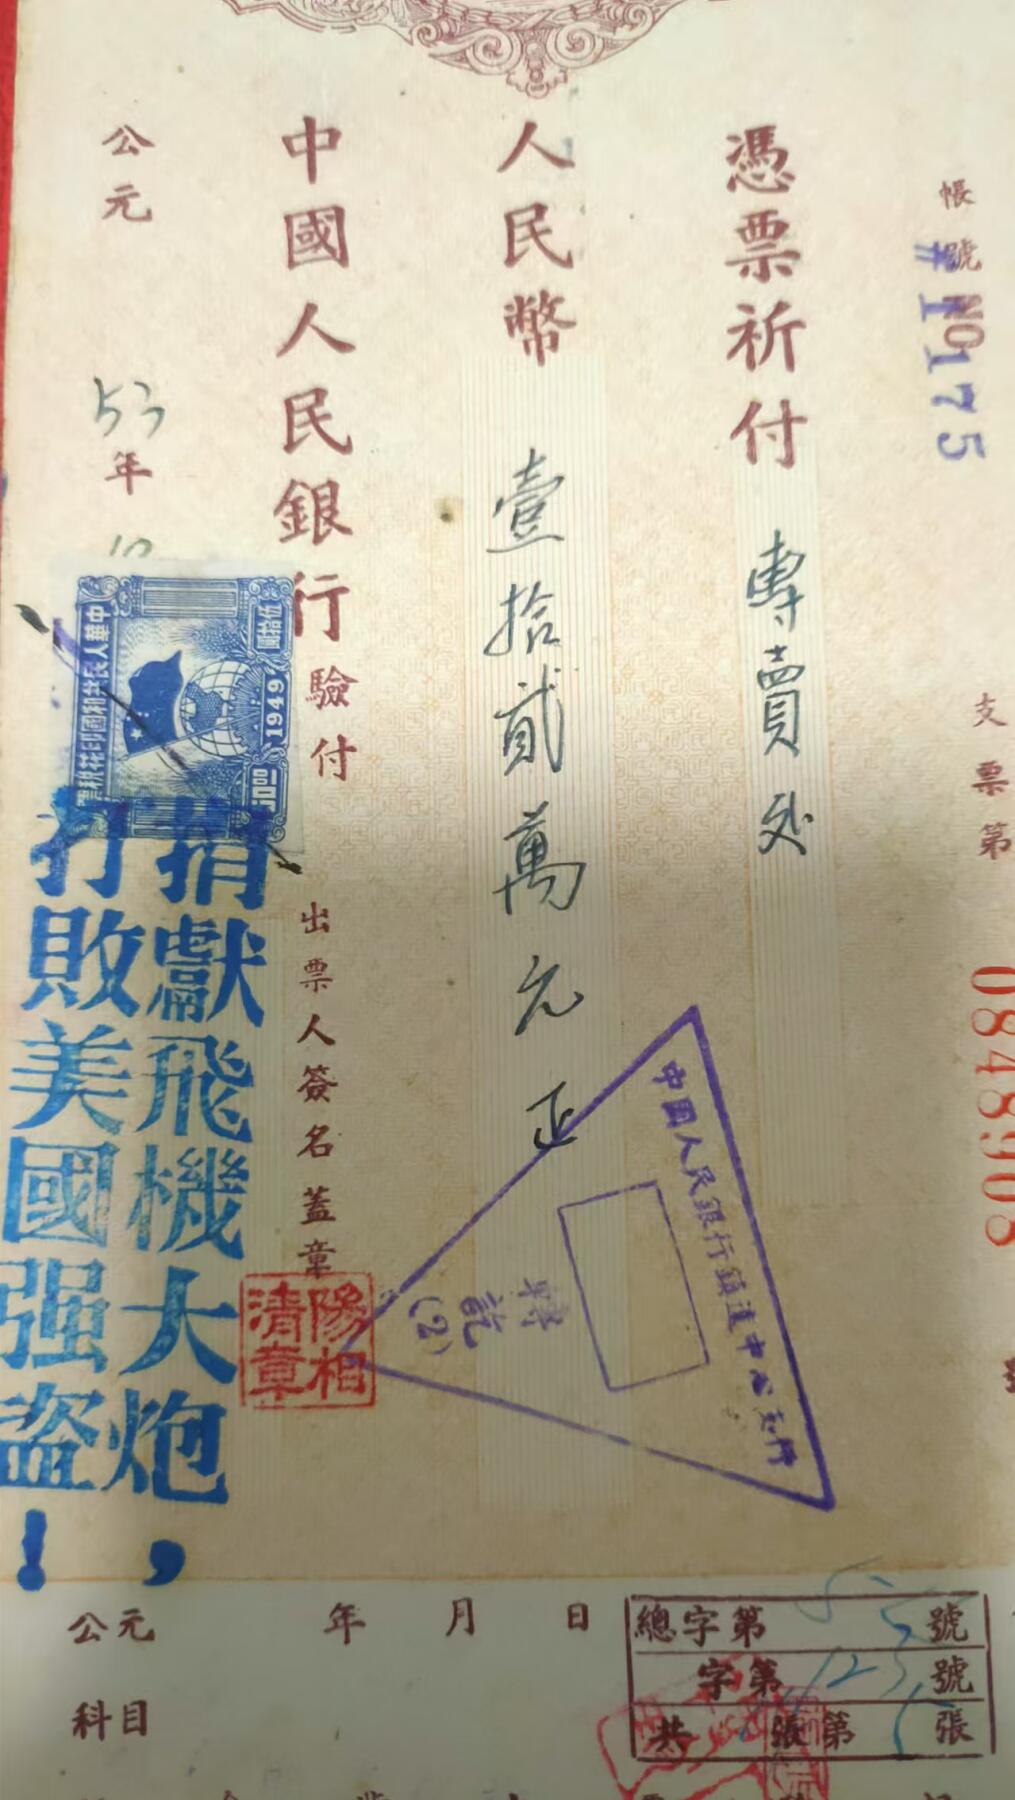 帳號 NO
#1175
支票第
0848908
憑票祈付 專賣處
人民幣 壹拾貳萬元正
中國人民銀行驗付
出票人簽名蓋章
公元 53年
中華人民共和國印花稅票
伍拾圓
1949
捐獻飛機大炮,
打敗美國强盜!
歐陽相清章
中國人民銀行鎮遠中心支行
轉訖
(2)
公元 年 月 日
科目
總字第 號
字第 123 號
共 張第 張